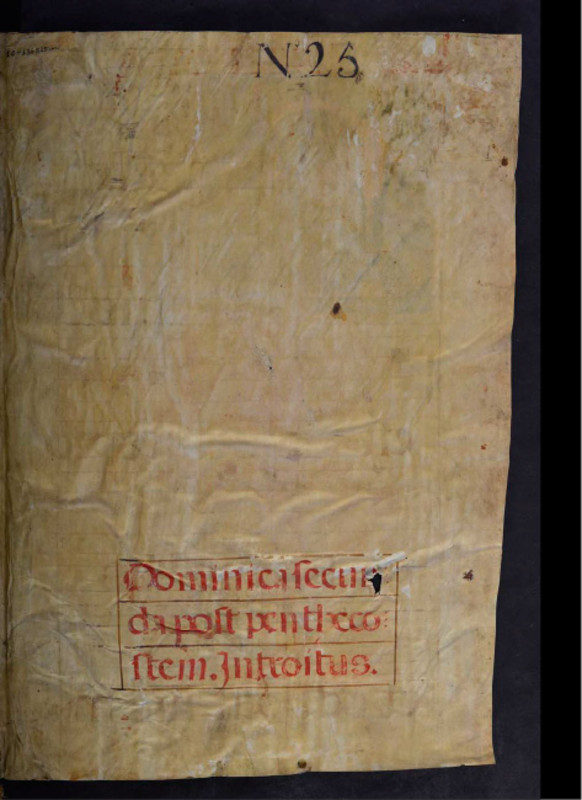 N 25
Dominica secun
da post pentheco:
stem. Introitus.